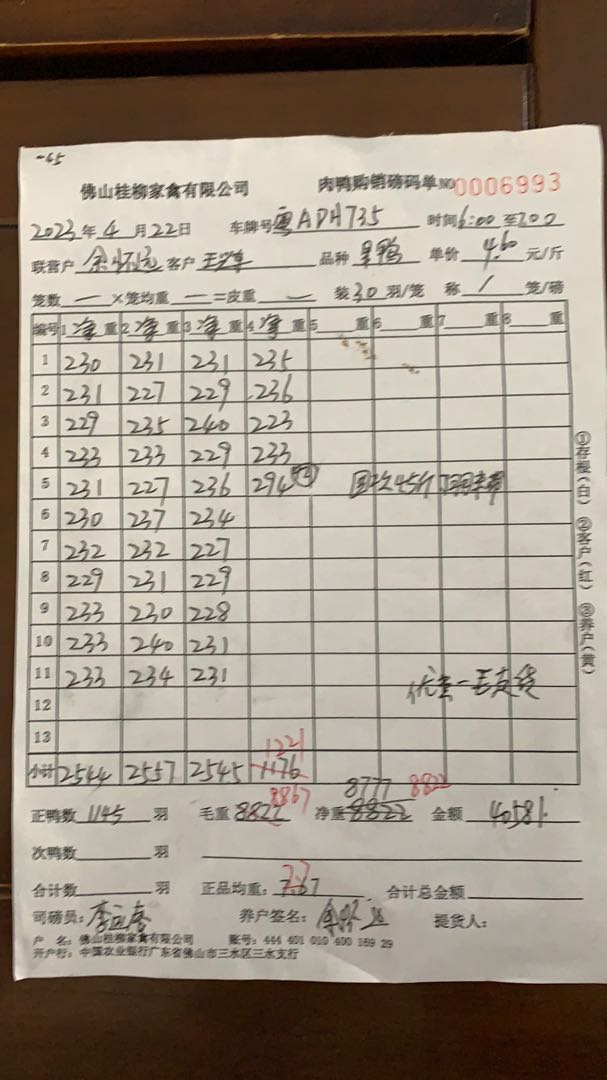 -45
佛山桂柳家禽有限公司 肉鸭购销磅码单 NO 0006993
2023年 4 月 22日 车牌号 粤ADH735 时间 6:00 至 7:00
联营户 客户 品种 单价 4.60 元/斤
笼数 一 ×笼均重 一 =皮重 一 装 30 羽/笼 称 / 笼/磅
编号 1 净 重 2 净 重 3 净 重 4 净 重 5 重 6 重 7 重 8 重
1 230 231 231 235
2 231 227 229 236
3 229 235 240 223
4 233 233 229 233
5 231 227 236 294 45斤
6 230 237 234
7 232 232 227
8 229 231 229
9 233 230 228
10 233 240 231
11 233 234 231
优质一毛
12
13
1221
小计 2544 2557 2545 1176
8867 8777 8822
正鸭数 1145 羽 毛重 8822 净重 8822 金额 40581.
次鸭数 羽
合计数 羽 正品均重: 合计总金额
司磅员: 养户签名: 提货人:
户 名: 佛山桂柳家禽有限公司 账号: 444 401 010 400 169 29
开户行: 中国农业银行广东省佛山市三水区三水支行
①存根(白) ②客户(红) ③养户(黄)